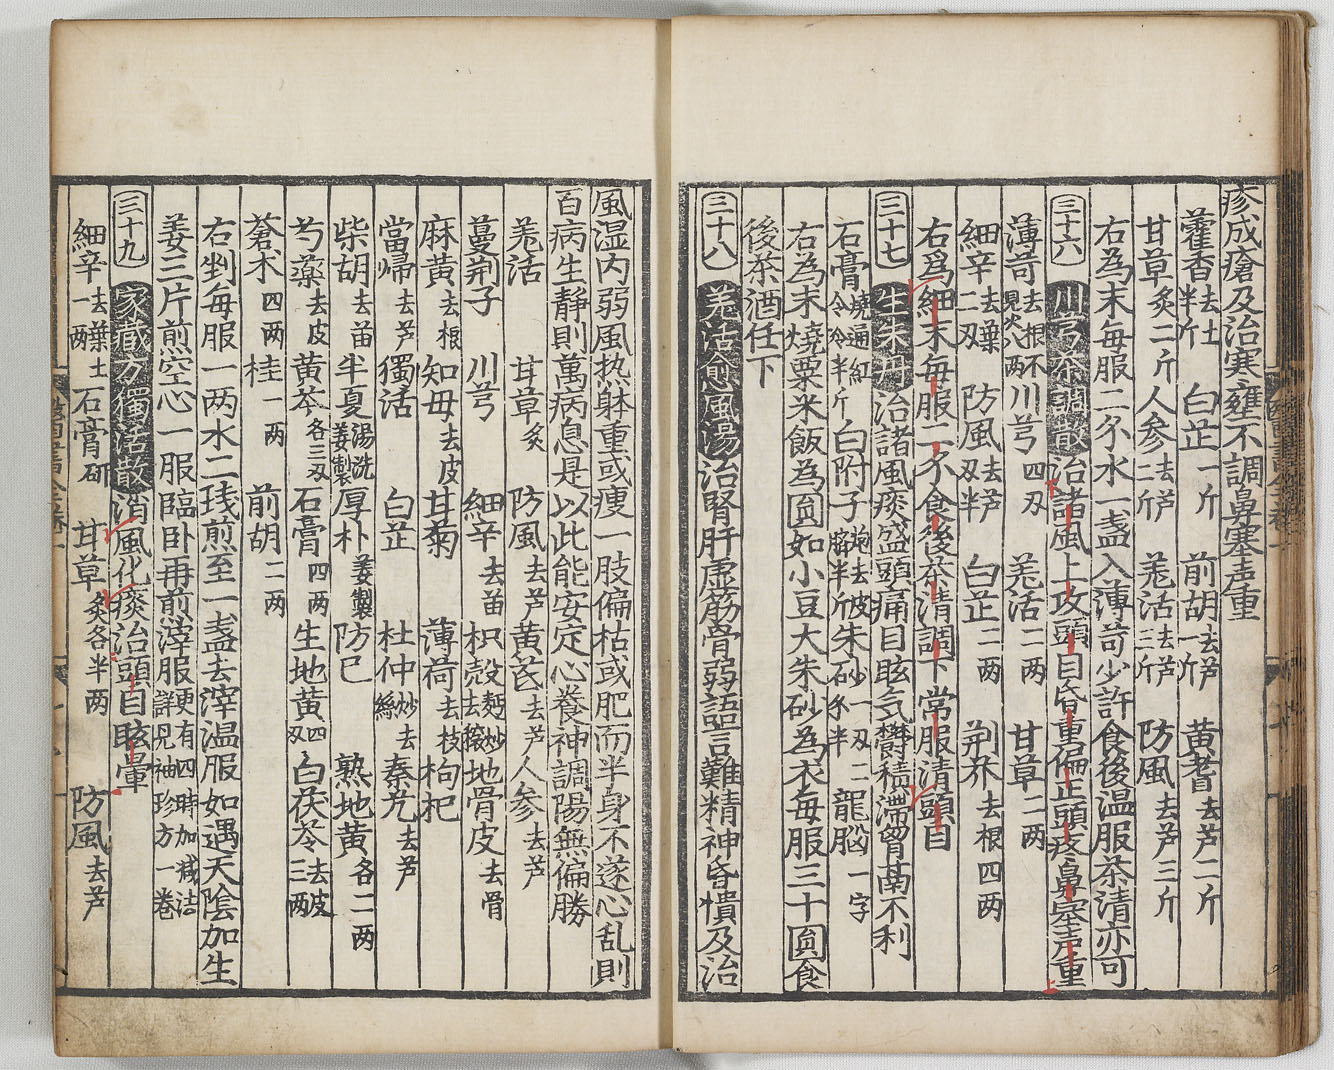 疹成瘡及治寒壅不調鼻塞声重
藿香去土半斤 白芷一斤 前胡去芦一斤 黄耆去芦二斤
甘草炙二斤人参去芦二斤 羗活去芦三斤 防風去芦三斤
右為末每服二不水一盞入薄苛少許食後温服茶清亦可
三十六 川芎茶調散治諸風上攻頭目昏重偏正頭疼鼻塞声重
薄苛去根不見火八两川芎四刄 羗活二两 甘草二两
細辛去葉二刄 防風去芦刄半 白芷二两 荆芥去根四两
右爲細末每服二不食後茶清調下常服清頭目
三十七 生朱丹治諸風痰盛頭痛目眩気欝積滞胷萳不利
石膏燒通紅令冷半斤白附子炮去皮臍半斤朱砂一刄二不半龍脳一字
右為末燒粟米飯為圎如小豆大朱砂為衣每服三十圎食
後茶酒任下
三十八 羗活愈風湯治腎肝虚筋骨弱語言難精神昏憒及治
風湿内弱風热躰重或痩一肢偏枯或肥而半身不遂心乱則
百病生静則萬病息是以此能安定心養神調陽無偏勝
羗活 甘草炙 防風去芦黄芪去芦人参去芦
蔓荆子 川芎 細辛去苗 枳殻麺炒去穰地骨皮去骨
麻黄去根知母去皮甘菊 薄荷去枝枸杞
當帰去芦獨活 白芷 杜仲炒去絲秦艽去芦
柴胡去苗半夏湯洗姜製厚朴姜製防已 熟地黄各二两
芍藥去皮黄芩各三刄石膏四两生地黄四刄白茯苓去皮三两
蒼术四两桂一两 前胡二两
右剉每服一两水二琖煎至一盞去滓温服如遇天陰加生
姜三片煎空心一服臨卧再煎滓服更有四時加减法詳見袖珍方一卷
三十九 家藏方獨活散消風化痰治頭目眩暈
細辛去葉土一两石膏研 甘草炙各半两 防風去芦